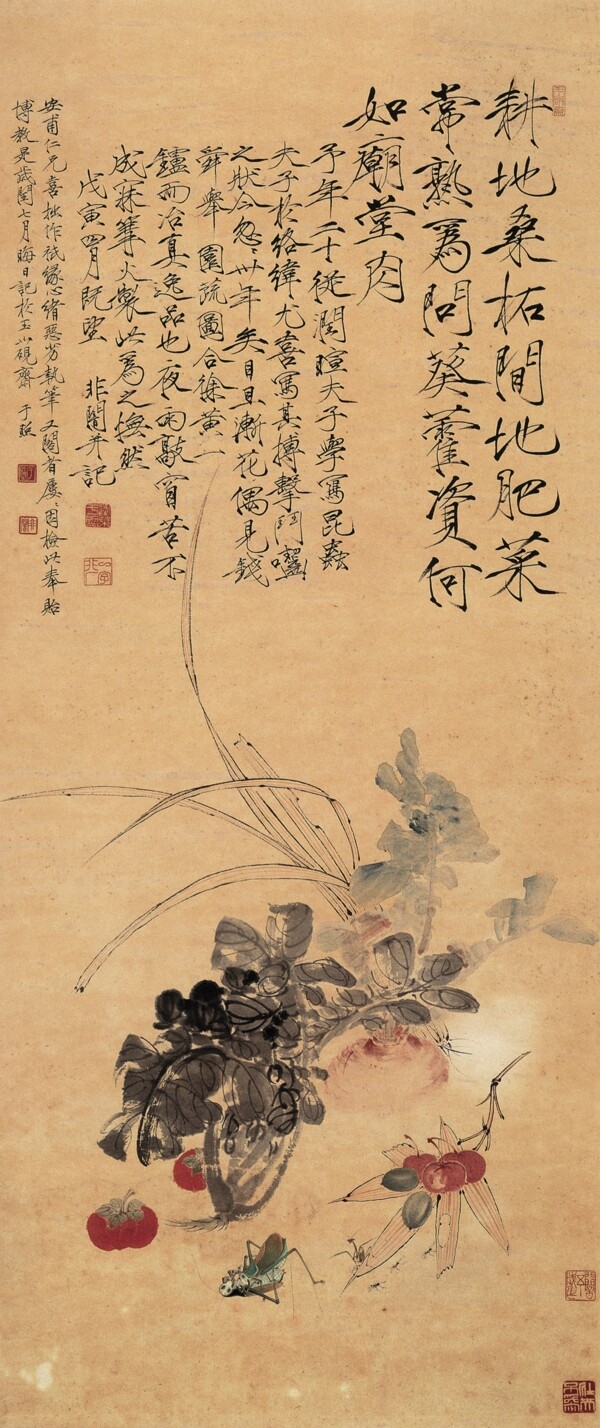 耕地桑柘間地肥菜
常熟為問葵藿資何
如廟堂肉
予年二十從潤暄夫子學寫昆蟲
夫子於絡緯尤喜寫其搏擊鬥囓
之狀今忽忽卅年矣目且漸花偶見錢
舜舉園蔬圖合徐黃一
鑪而冶真逸品也夜雨敲窗苦不
成寐篝火製此為之撫然
戊寅四月既望 非闇并記
安甫仁兄喜拙作祇緣心緒惡劣執筆又闇者屢屢因檢此奉貽
博教是歲閏七月晦日記於玉山硯齋 于照